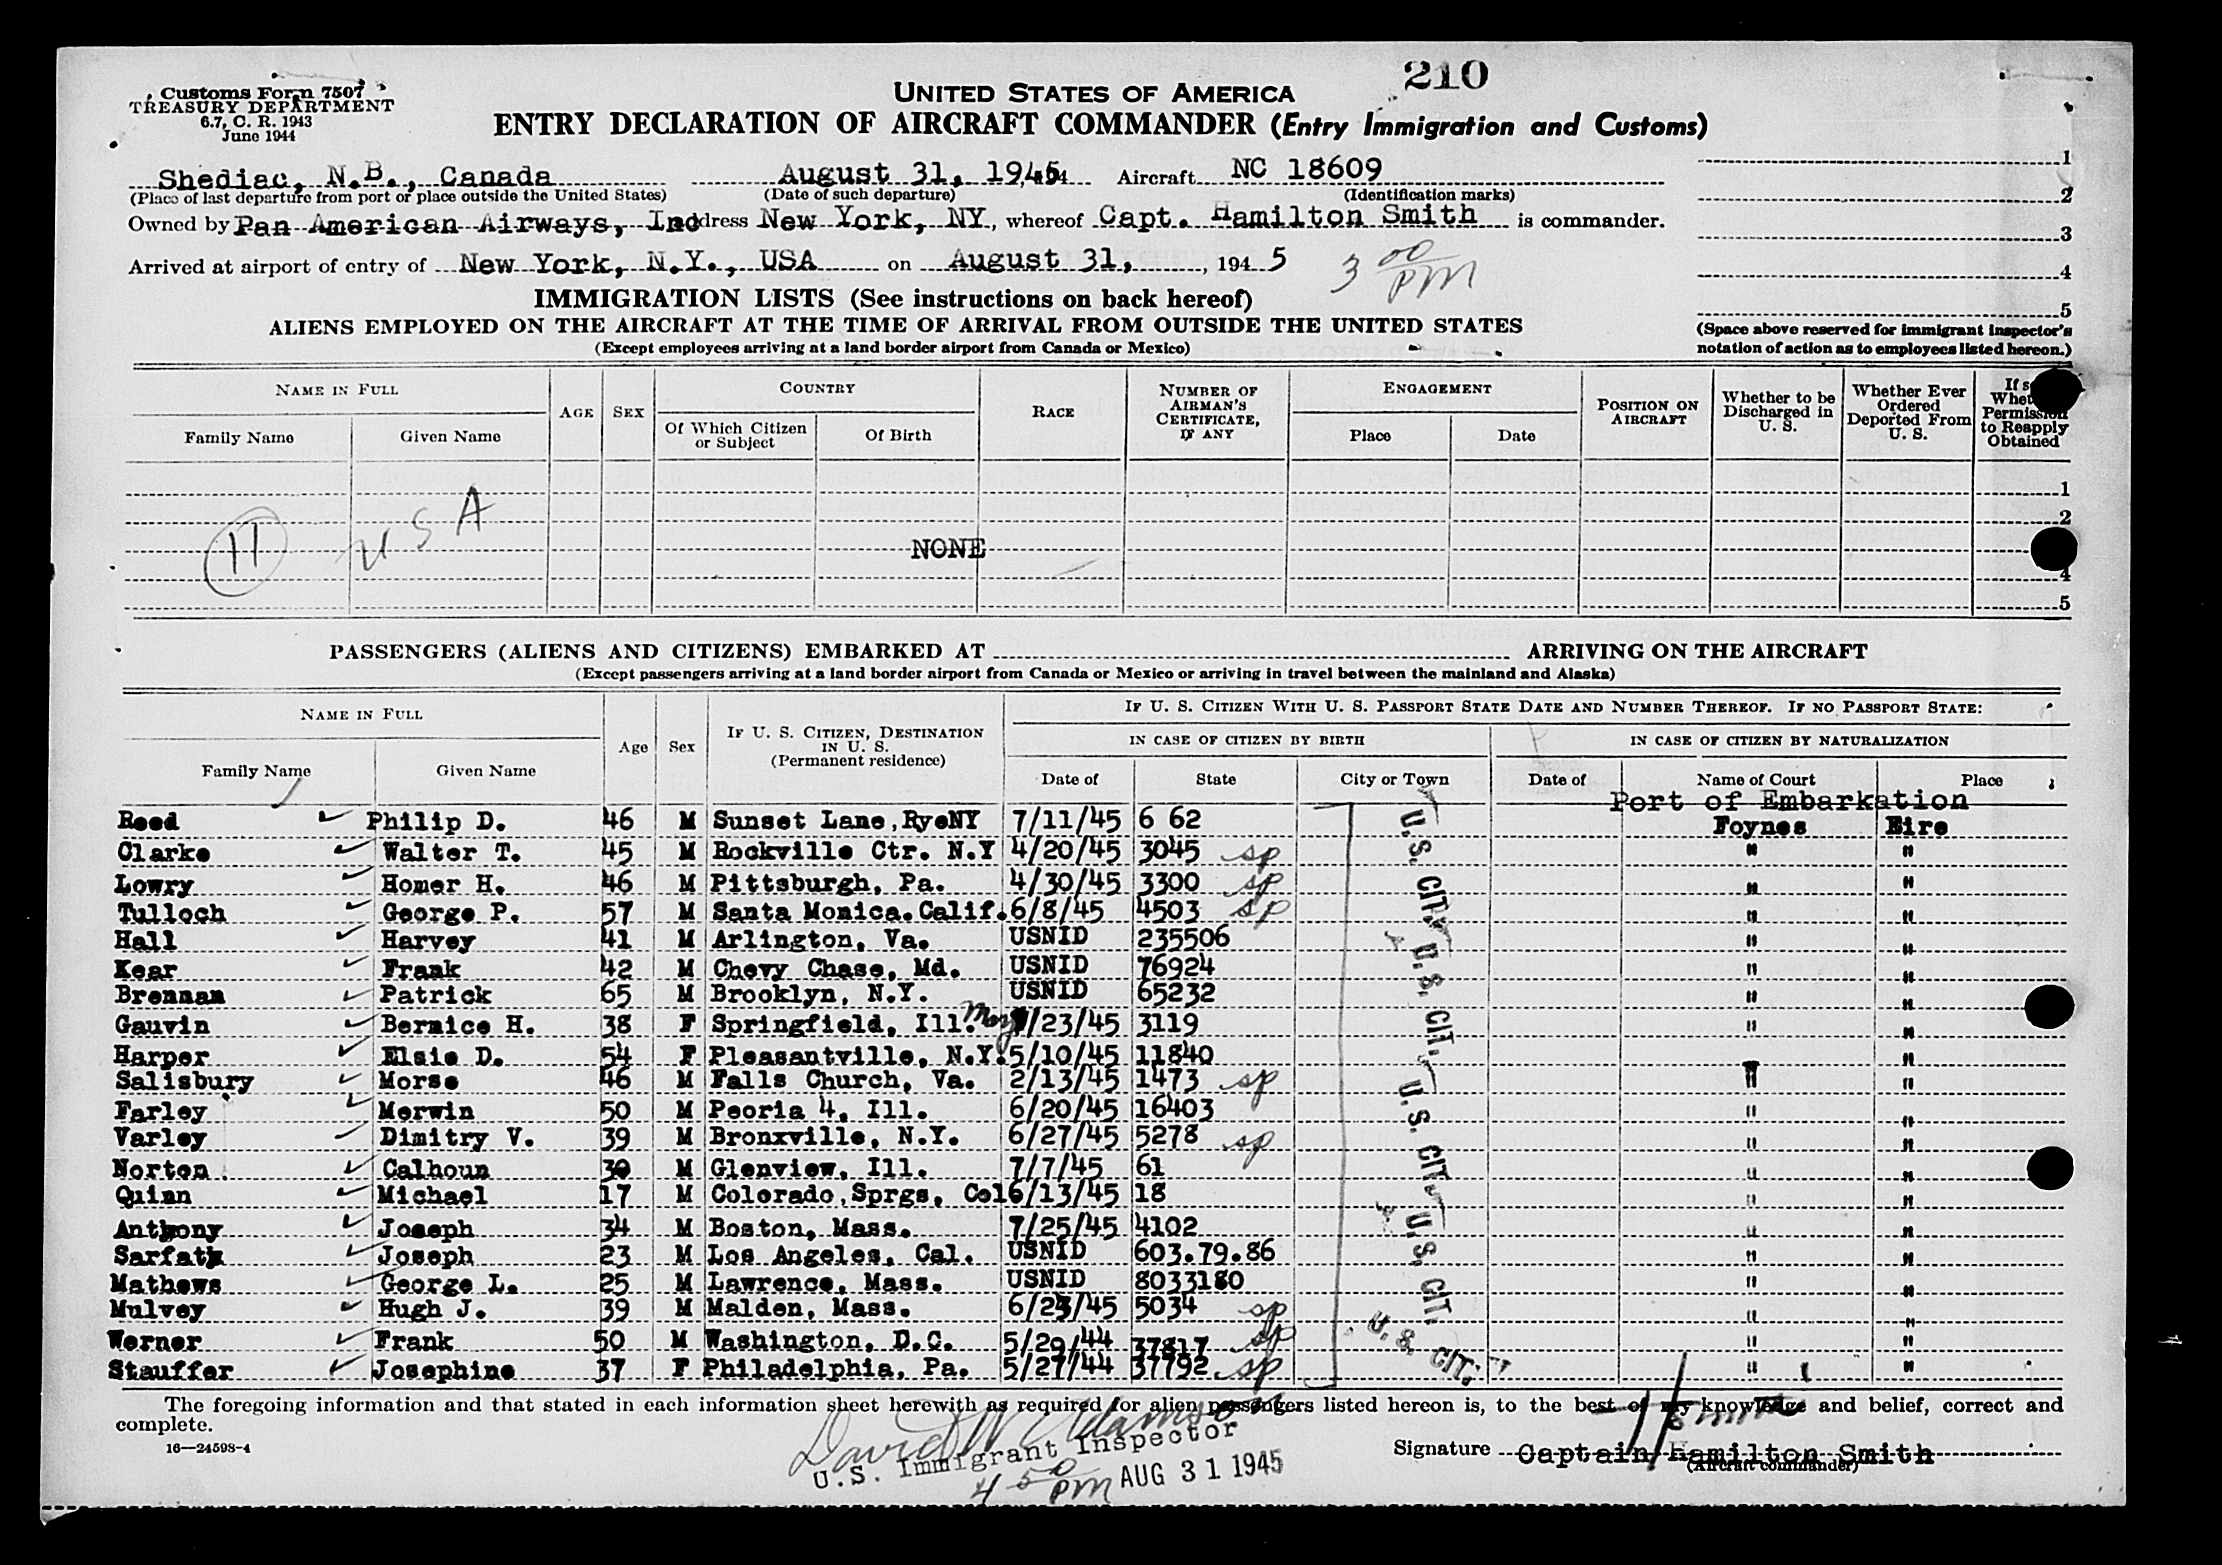 210
Customs Form 7507
TREASURY DEPARTMENT
6.7, C. R. 1943
June 1944
UNITED STATES OF AMERICA
ENTRY DECLARATION OF AIRCRAFT COMMANDER (Entry Immigration and Customs)
Shediac, N.B., Canada August 31, 1945 Aircraft NC 18609
(Place of last departure from port or place outside the United States) (Date of such departure) (Identification marks)
Owned by Pan American Airways, Inc Address New York, NY, whereof Capt. Hamilton Smith is commander.
Arrived at airport of entry of New York, N.Y., USA on August 31, , 194 5 3 00 PM
1
2
3
4
5
(Space above reserved for immigrant inspector's
notation of action as to employees listed hereon.)
IMMIGRATION LISTS (See instructions on back hereof)
ALIENS EMPLOYED ON THE AIRCRAFT AT THE TIME OF ARRIVAL FROM OUTSIDE THE UNITED STATES
(Except employees arriving at a land border airport from Canada or Mexico)
NAME IN FULL AGE SEX COUNTRY RACE NUMBER OF AIRMAN'S CERTIFICATE, IF ANY ENGAGEMENT POSITION ON AIRCRAFT Whether to be Discharged in U. S. Whether Ever Ordered Deported From U. S. If Permission to Reapply Obtained
Family Name Given Name Of Which Citizen or Subject Of Birth Place Date
1
2
11 USA NONE
4
5
PASSENGERS (ALIENS AND CITIZENS) EMBARKED AT ARRIVING ON THE AIRCRAFT
(Except passengers arriving at a land border airport from Canada or Mexico or arriving in travel between the mainland and Alaska)
NAME IN FULL Age Sex IF U. S. CITIZEN, DESTINATION IN U. S. (Permanent residence) IF U. S. CITIZEN WITH U. S. PASSPORT STATE DATE AND NUMBER THEREOF. IF NO PASSPORT STATE:
IN CASE OF CITIZEN BY BIRTH IN CASE OF CITIZEN BY NATURALIZATION
Family Name Given Name Date of State City or Town Date of Name of Court Place
Port of Embarkation
Reed Philip D. 46 M Sunset Lane, RyeNY 7/11/45 6 62 Foynes Eire
Clarke Walter T. 45 M Rockville Ctr. N.Y 4/20/45 3045 sp " "
Lowry Homer H. 46 M Pittsburgh, Pa. 4/30/45 3300 sp " "
Tulloch George P. 57 M Santa Monica. Calif. 6/8/45 4503 sp " "
Hall Harvey 41 M Arlington, Va. USNID 235506 " "
Kear Frank 42 M Chevy Chase, Md. USNID 76924 " "
Brennan Patrick 65 M Brooklyn, N.Y. USNID 65232 " "
Gauvin Bernice H. 38 F Springfield, Ill. May /23/45 3119 " "
Harper Elsie D. 54 F Pleasantville, N.Y. 5/10/45 11840 "
Salisbury Morse 46 M Falls Church, Va. 2/13/45 1473 sp " "
Farley Merwin 50 M Peoria 4, Ill. 6/20/45 16403 " "
Varley Dimitry V. 39 M Bronxville, N.Y. 6/27/45 5278 sp " "
Norton Calhoun 30 M Glenview, Ill. 7/7/45 61 " "
Quinn Michael 17 M Colorado, Sprgs, Col 6/13/45 18 " "
Anthony Joseph 34 M Boston, Mass. 7/25/45 4102 " "
Sarfaty Joseph 23 M Los Angeles, Cal. USNID 603.79.86 " "
Mathews George L. 25 M Lawrence, Mass. USNID 8033180 " "
Mulvey Hugh J. 39 M Malden, Mass. 6/23/45 5034 sp " "
Werner Frank 50 M Washington, D.C. 5/29/44 37817 sp " "
Stauffer Josephine 37 F Philadelphia, Pa. 5/27/44 37792 sp " "
U. S. CIT.
U. S. CIT.
U. S. CIT.
U. S. CIT.
U. S. CIT.
The foregoing information and that stated in each information sheet herewith as required for alien passengers listed hereon is, to the best of my knowledge and belief, correct and
complete.
16—24598-4
David W Adamson
U.S. Immigrant Inspector
4 50 PM AUG 31 1945
H Smith
Signature Captain Hamilton Smith
(Aircraft commander)